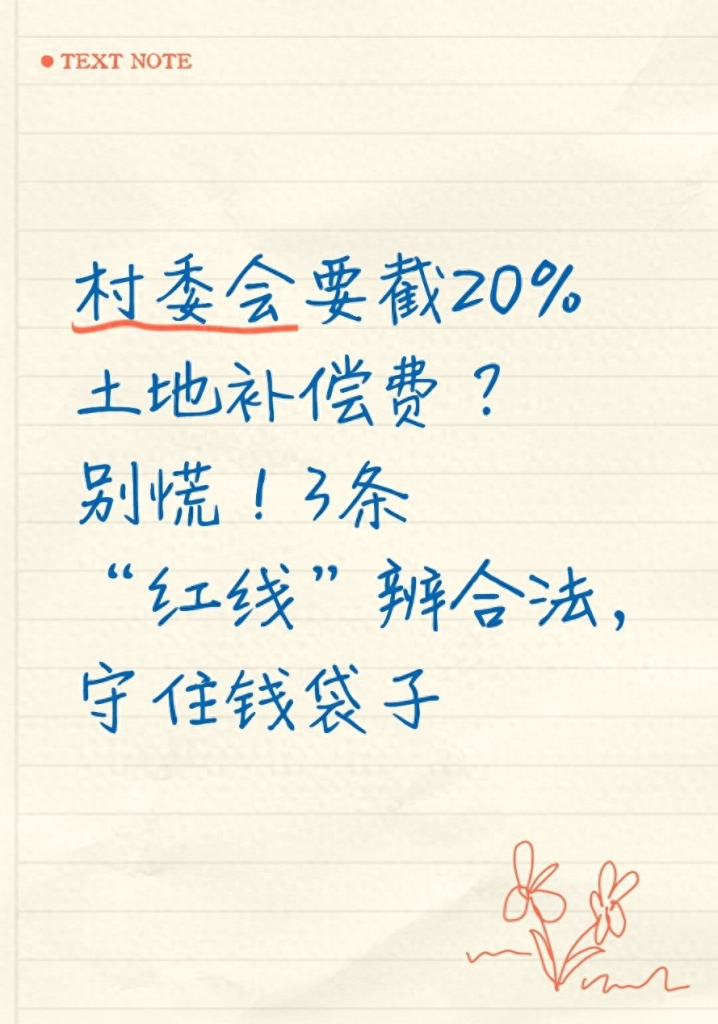 TEXT NOTE
村委会要截20%
土地补偿费？
别慌！3条
“红线”辨合法，
守住钱袋子